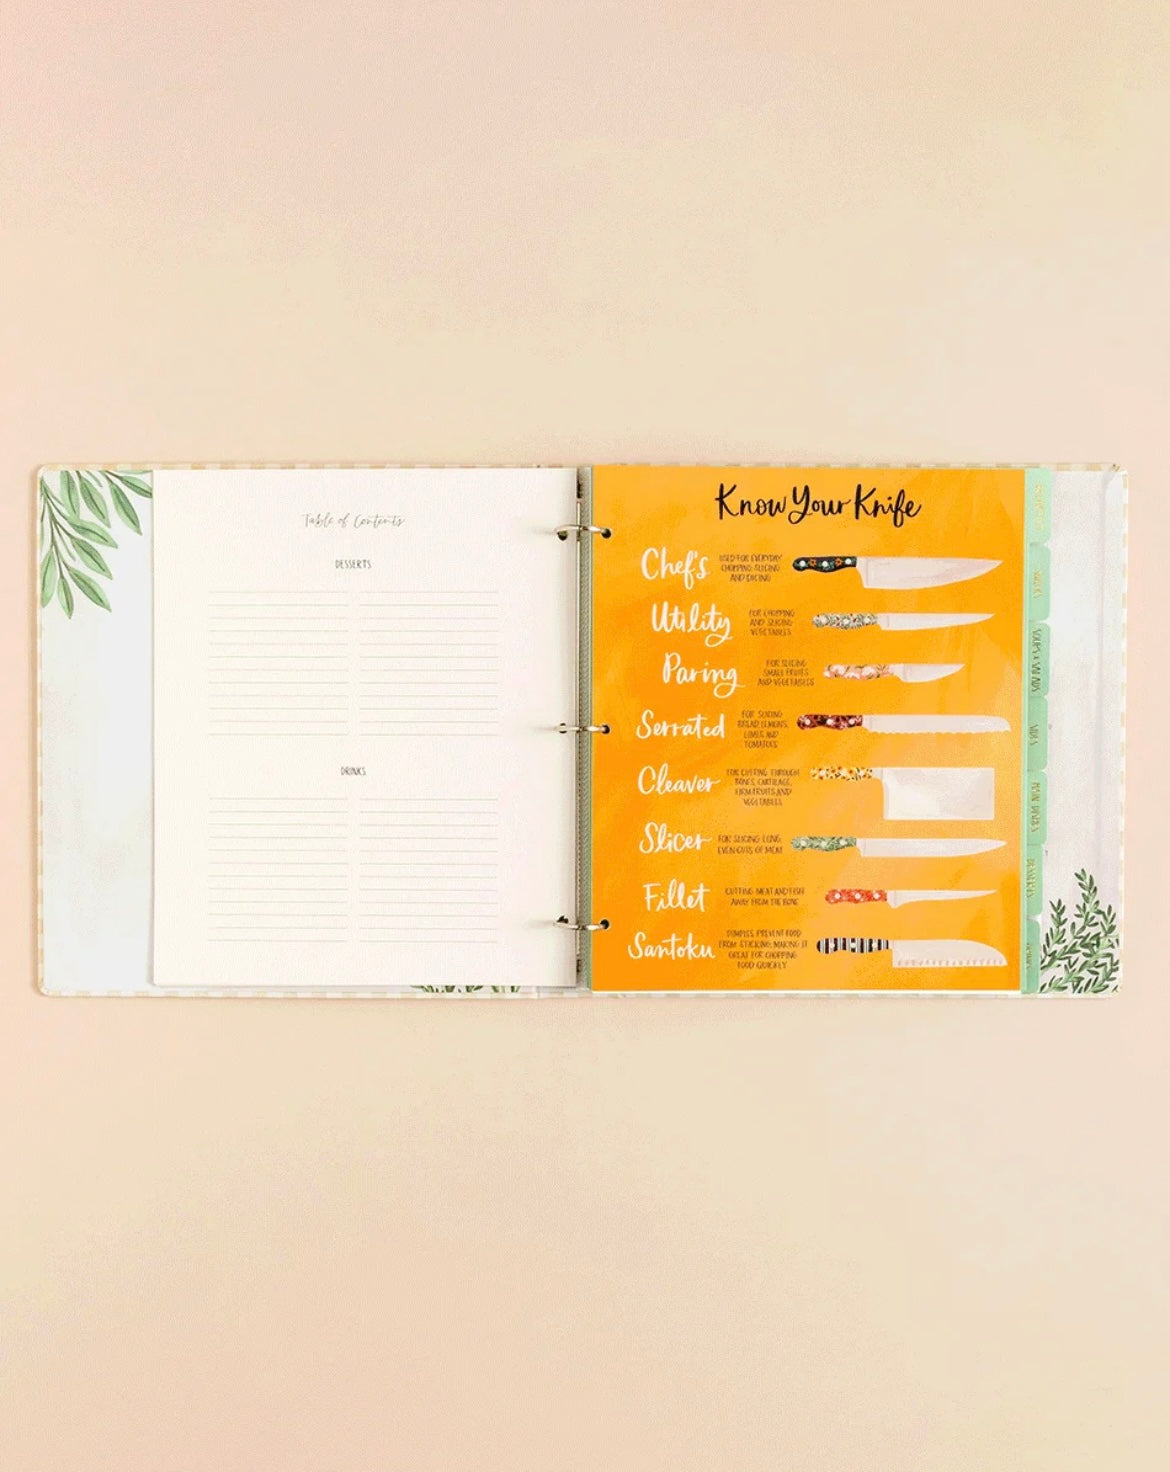 Table of Contents
DESSERTS
DRINKS
Know Your Knife
Chef's
USED FOR EVERYDAY
CHOPPING, SLICING
AND DICING
Utility
FOR CHOPPING
AND SLICING
VEGETABLES
Paring
FOR SLICING
SMALL FRUITS
AND VEGETABLES
Serrated
FOR SLICING
BREAD, LEMONS,
LIMES AND
TOMATOES
Cleaver
FOR CUTTING THROUGH
BONES, CARTILAGE,
FIRM FRUITS AND
VEGETABLES
Slicer
FOR SLICING LONG,
EVEN CUTS OF MEAT
Fillet
CUTTING MEAT AND FISH
AWAY FROM THE BONE
Santoku
DIMPLES PREVENT FOOD
FROM STICKING; MAKING IT
GREAT FOR CHOPPING
FOOD QUICKLY
SOUPS & SALADS
SIDES
MAIN DISHES
DESSERTS